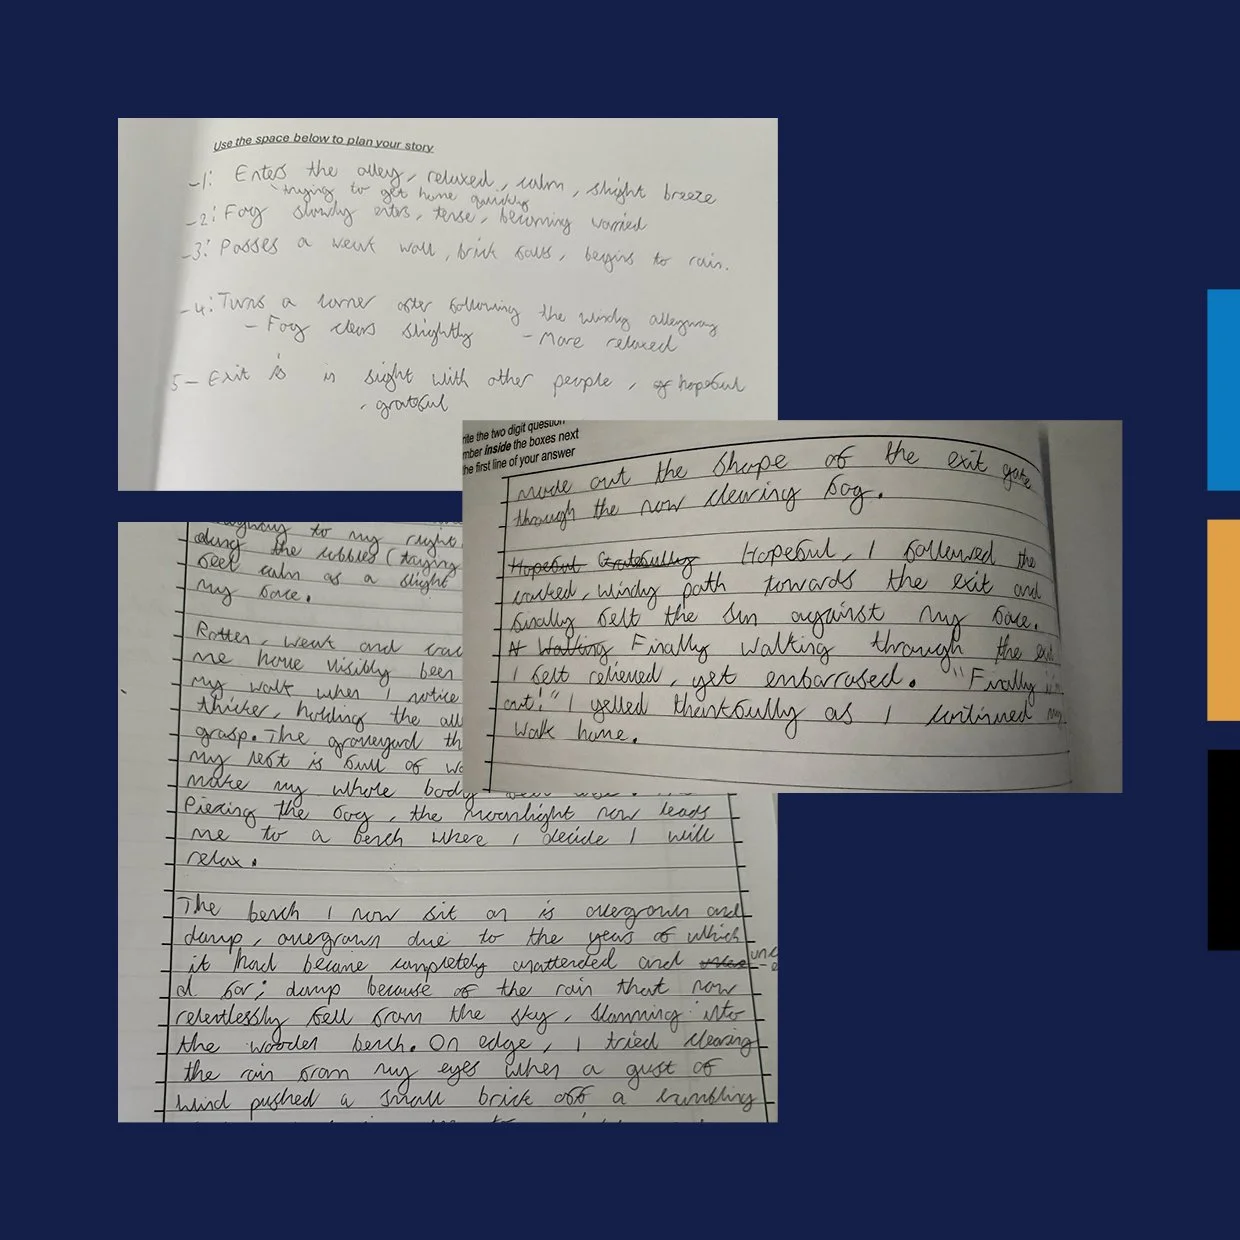 Use the space below to plan your story
-1: Enters the alley, relaxed, calm, slight breeze
trying to get home quickly
-2: Fog slowly enters, tense, becoming worried
-3: Passes a weak wall, brick falls, begins to rain.
-4: Turns a corner after following the windy alleyway
- Fog clears slightly - More relaxed
5- Exit is in sight with other people, hopeful
, grateful
to my right
the (trying
feel calm as a slight
my face.
Rotten, weak and
me have visibly been
my walk when I notice
thicker, holding the
grasp. The graveyard
my left is full of
make my whole body
Piercing the fog, the moonlight now leads
me to a bench where I decide I will
relax.
The bench I now sit on is overgrown and
damp, overgrown due to the years of which
it had become completely unattended and
d for; damp because of the rain that now
relentlessly fell from the sky, slamming into
the wooden bench. On edge, I tried clearing
the rain from my eyes when a gust of
wind pushed a small brick off a
the two digit question
inside the boxes next
the first line of your answer
made out the shape of the exit gate
through the now clearing fog.
Hopeful Gratefully Hopeful, I followed the
cracked, windy path towards the exit and
finally felt the sun against my face.
Walking Finally walking through the
I felt relieved, yet embarrased. "Finally
out!" I yelled thankfully as I continued my
walk home.